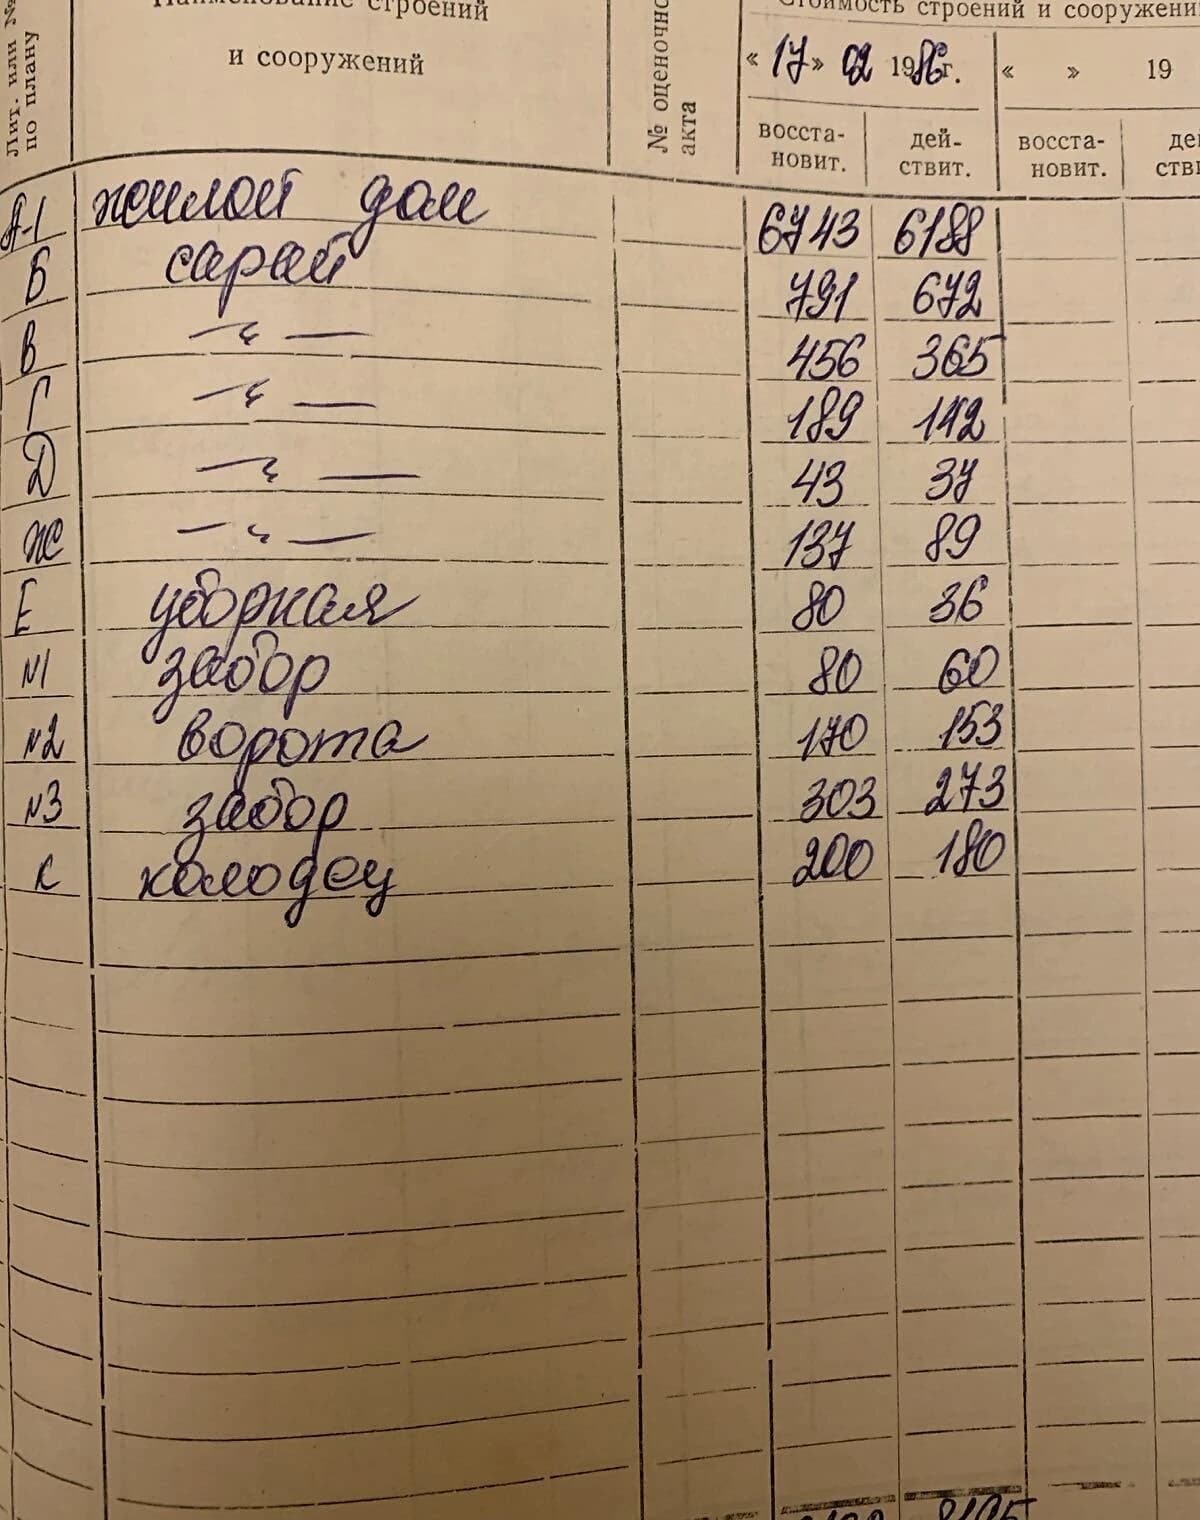 Лит. или №
по плану
Наименование строений
и сооружений
№ оценочно
акта
Стоимость строений и сооружени
« 17 » 02 1986 г. « » 19
восста-
новит.
дей-
ствит.
восста-
новит.
де
ств
А-1 жилой дом 6743 6188
Б сарай 791 672
В —„— 456 365
Г —„— 189 142
Д —„— 43 37
Ж —„— 137 89
Е уборная 80 36
N1 забор 80 60
N2 ворота 170 153
N3 забор 303 273
К колодец 200 180
8195